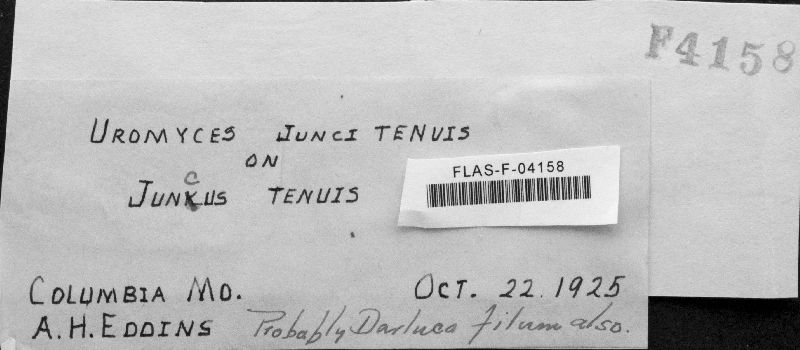 F4158
UROMYCES JUNCI TENUIS
ON
FLAS-F-04158
c
JUNKUS TENUIS
COLUMBIA MO. OCT. 22. 1925
A.H. EDDINS Probably Darluca filum also.